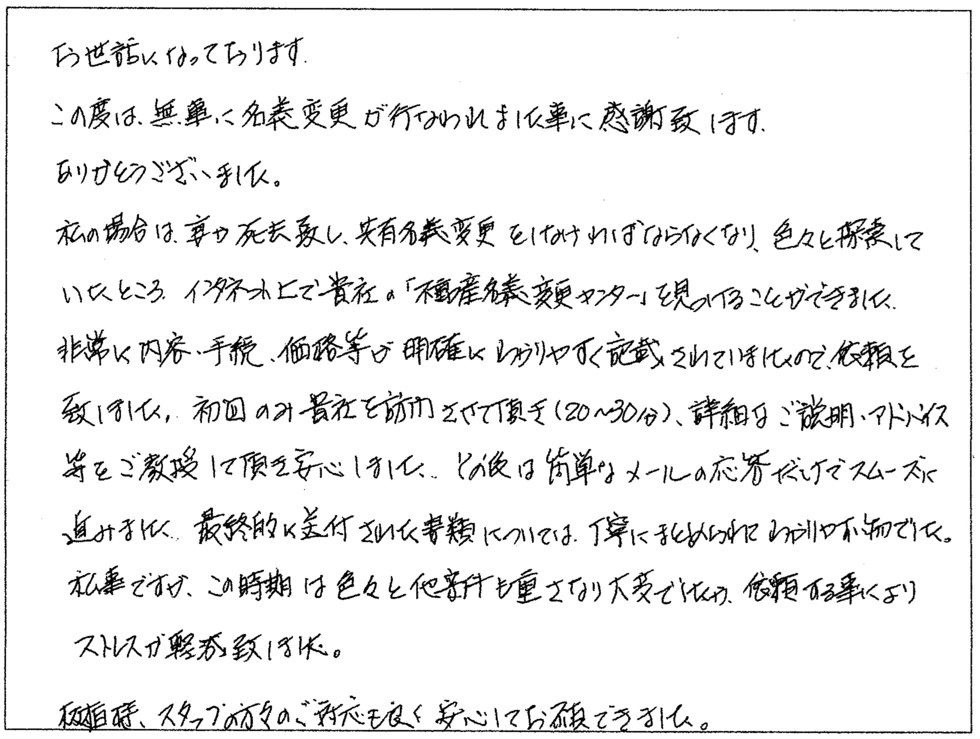 お世話になっております.
この度は、無事に名義変更が行なわれました事に感謝致します.
ありがとうございました。
私の場合は、妻が死去致し、共有名義変更をしなければならなくなり、色々と探索して
いたところ、インタネット上で貴社の「不動産名義変更センター」を見つけることができました.
非常に内容、手続、価格等が明確にわかりやすく記載されていましたので、依頼を
致しました. 初回のみ貴社を訪問させて頂き(20〜30分)、詳細なご説明・アドバイス
等をご教授して頂き安心しました. その後は簡単なメールの応答だけでスムーズに
進みました. 最終的に送付された書類については、丁寧にまとめられてわかりやすい物でした。
私事ですが、この時期は色々と他案件も重さなり大変でしたが、依頼する事により
ストレスが軽老致しました。
様、スタッフの方々のご対応も良く安心してお願できました。